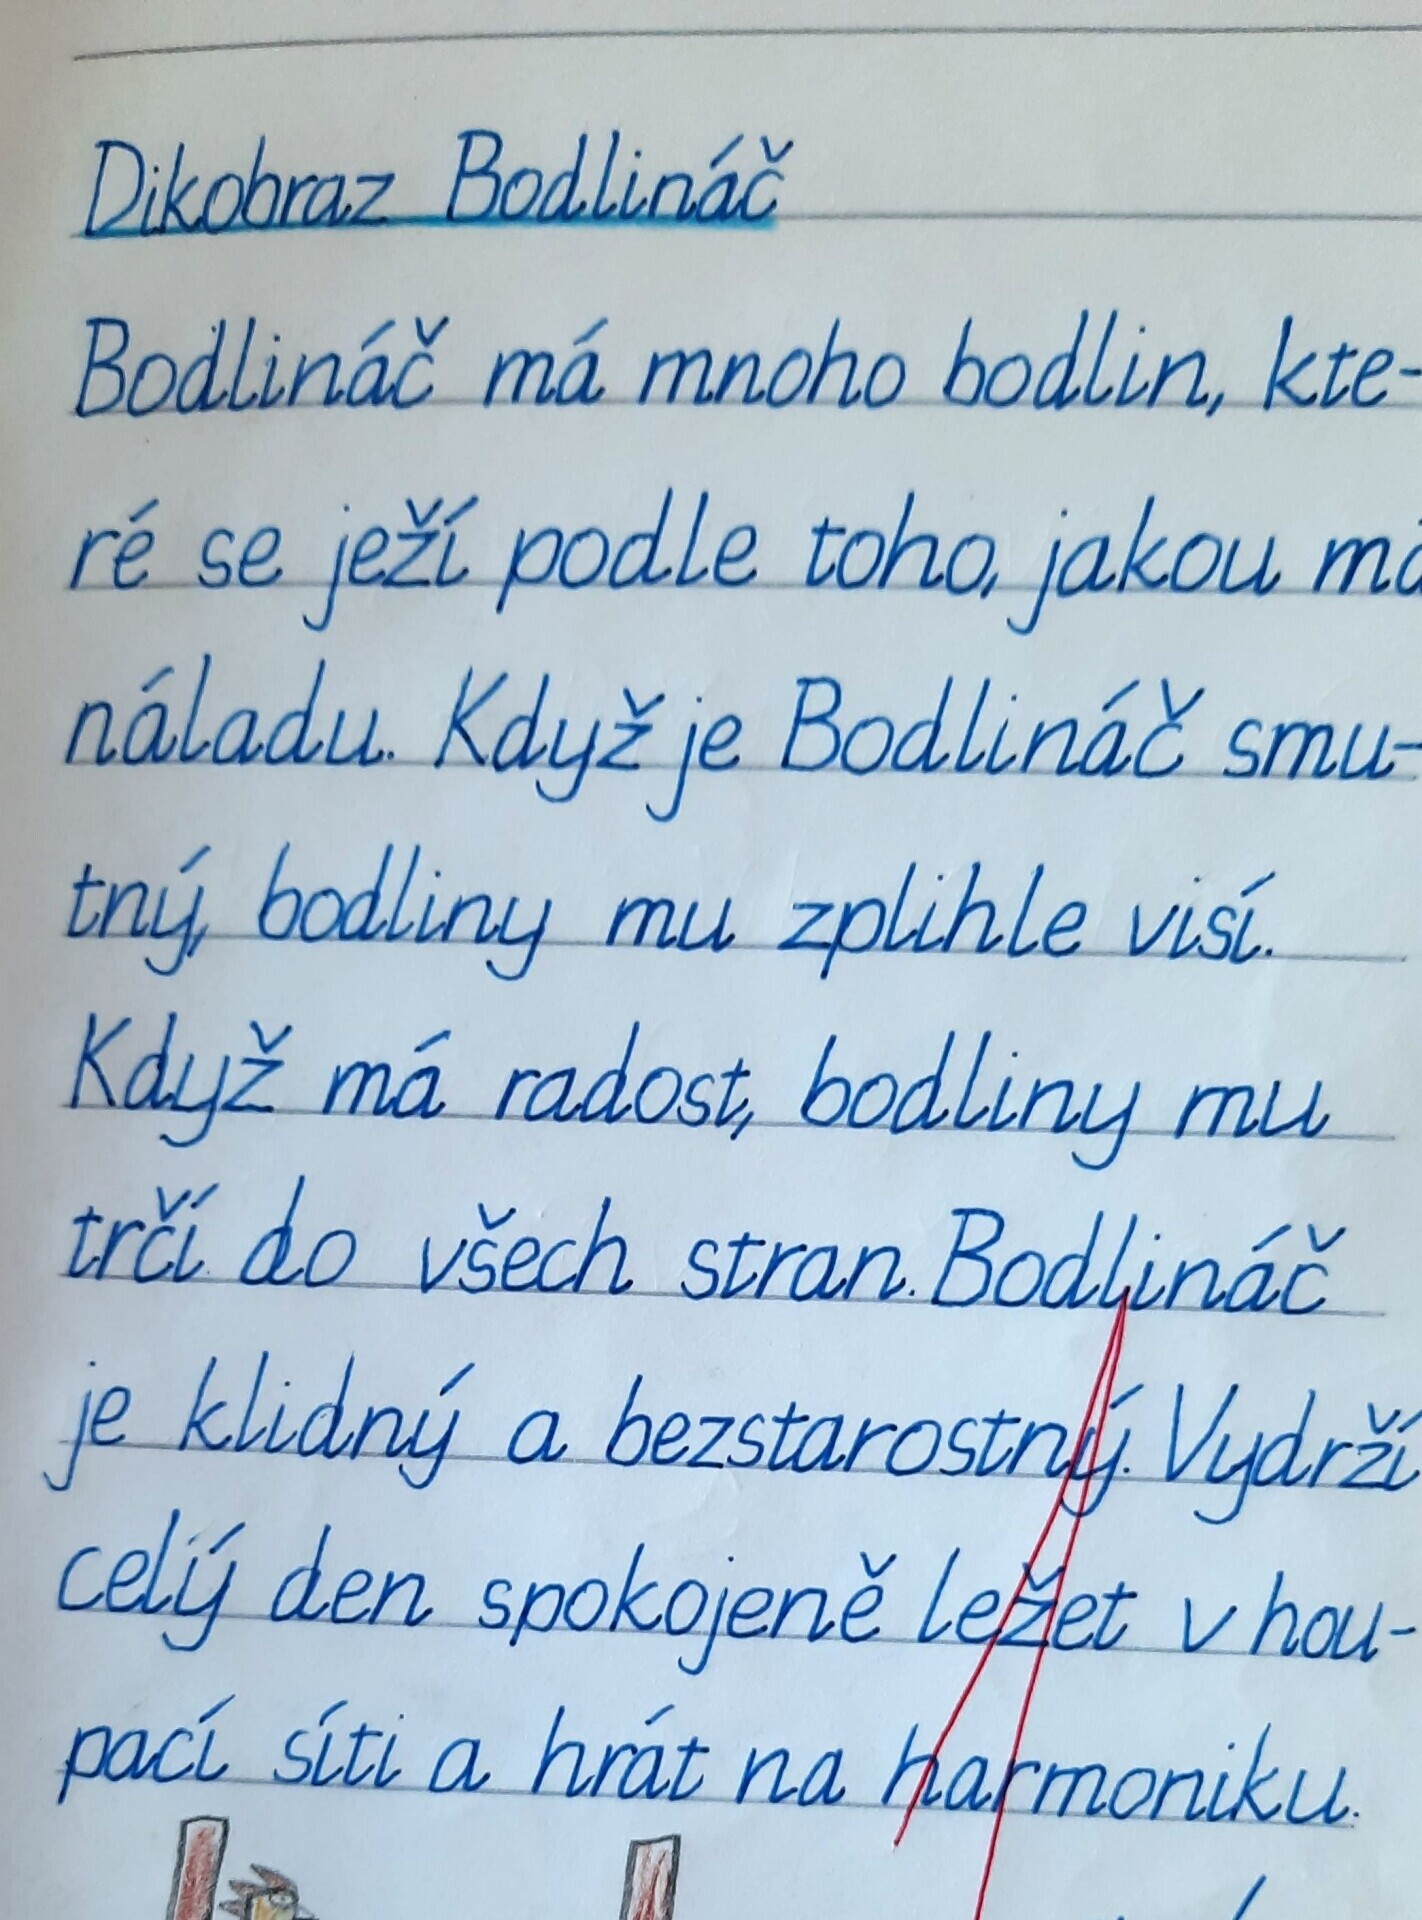 Dikobraz Bodlináč
Bodlináč má mnoho bodlin, kte-
ré se ježí podle toho, jakou má
náladu. Když je Bodlináč smu-
tný, bodliny mu zplihle visí.
Když má radost, bodliny mu
trčí do všech stran. Bodlináč
je klidný a bezstarostný. Vydrží
celý den spokojeně ležet v hou-
pací síti a hrát na harmoniku.